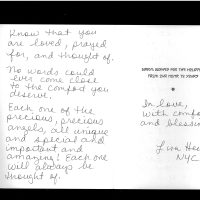 Know that you
are loved, prayed
for, and thought of.
No words could
ever come close
to the comfort you
deserve.
Each one of the
precious, precious
angels, all unique
and special and
important and
amazing! Each one
will always be
thought of.
FROM OUR HOME TO YOURS
In love,
with comfo
and blessin
NYC